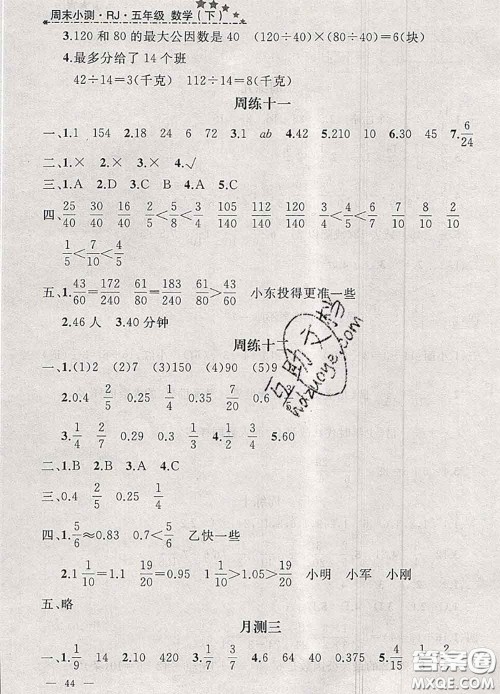 周末小测·RJ·五年级 数学(下)
3.120 和 80 的最大公因数是 40 (120÷40)×(80÷40)=6(块)
4.最多分给了 14 个班
42÷14=3(千克) 112÷14=8(千克)
周练十一
一、1.1 154 2.18 24 6 72 3.1 ab 4.42 5.210 10 6.30 45 7.6/24
二、1.× 2.× 3.× 4.√
三、1.A 2.D 3.C 4.A 5.C
四、25/40 30/40 16/40 2/5<5/8<3/4 112/140 120/140 105/140 3/4<4/5<6/7 7/10 8/10 2/10
1/5<7/10<4/5
五、1.43/60=172/240 61/80=183/240 61/80>43/60 小东投得更准一些
2.46 人 3.40 分钟
周练十二
一、1.(1)2 (2)7 (3)150 (4)90 (5)9
2.0.4 1/2 0.35 2/5 7/20 0.6
3.1/4 2/7 0.29 0.3 4.1/2 4/9 5.60
二、1.B 2.C 3.A 4.C
三、0.4 2/5 0.25 1/4
四、1.5/6≈0.83 0.7<5/6 乙快一些
2.1 1/10=1.1 19/20=0.95 1 1/10>1.05>19/20 小明 小军 小刚
五、略
月测三
一、1.9 14 2.420 3.1/7 3/7 40 0.375 4.4/15
— 44 —
互助文档
hdzuoye.com
答案圈
MXQE.COM